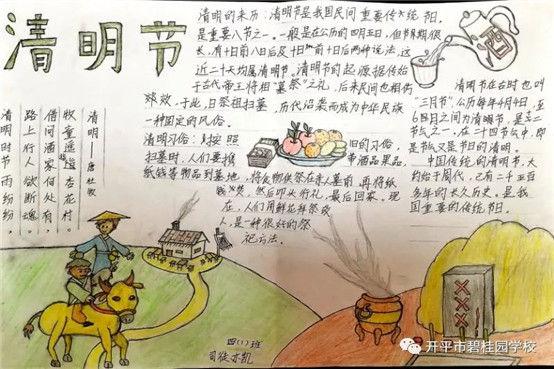 清明节
清明的来历：清明节是我国民间重要传统节日，
是重要八节之一。一般是在公历的四月五日，但节期很
长，有十日前八日后及十日前十日后两种说法，这
近二十天均属清明节。清明节的起源据传始
于古代帝王将相"墓祭"之礼，后来民间也相仿
效，于此日祭祖扫墓，历代沿袭而成为中华民族
一种固定的风俗。
清明习俗：按照旧的习俗，
扫墓时，人们要携带酒品果品、
纸钱等物品到墓地，将食物供祭在亲人墓前，再将纸
钱焚，然后叩头行礼，最后回家。现
在，人们用鲜花拜祭
人，是一种很好的祭
祀方法。
酒
清明节在古时也叫
"三月节"，公历每年4月4日至
6日之间为清明节，是二十四
节气之一。在二十四节气中，即
是节气又是节日的清明。
中国传统的清明节，大
约始于周代，已有二千五百
多年的长久历史。是我
国重要的传统节日。
清明——唐杜牧
清明时节雨纷纷，
路上行人欲断魂。
借问酒家何处有，
牧童遥指杏花村。
四(1)班
开平市碧桂园学校